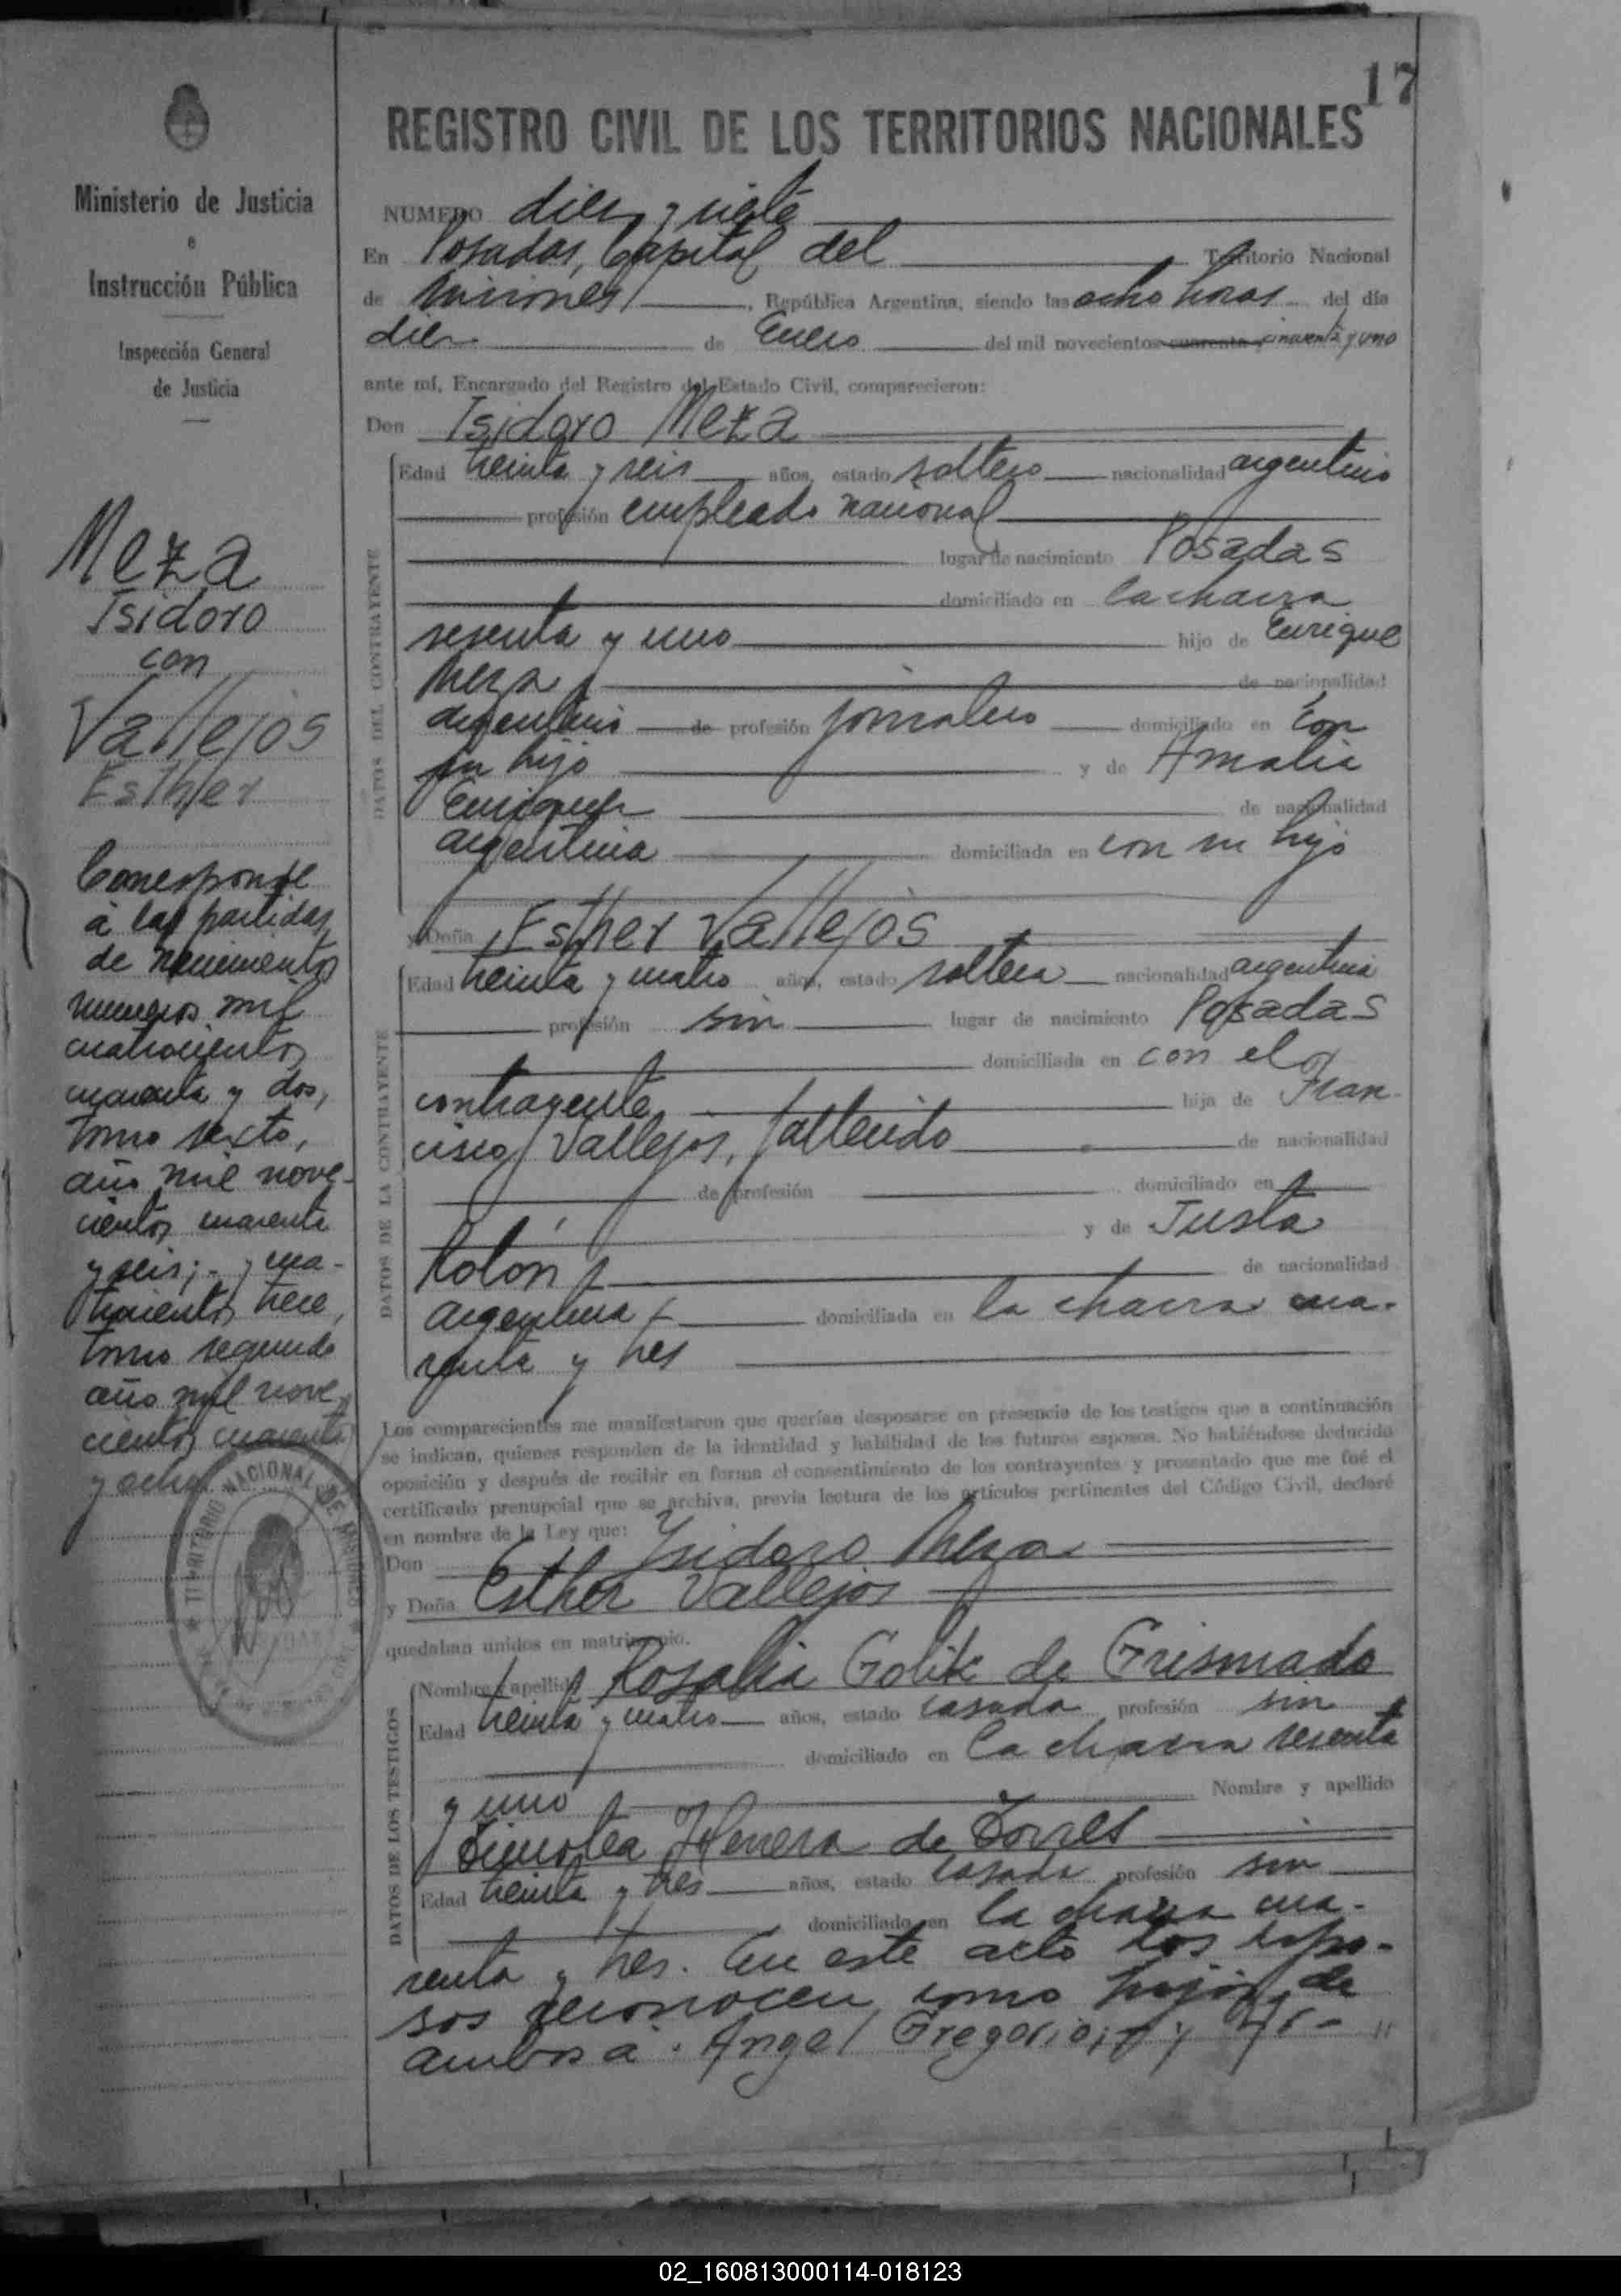 17
REGISTRO CIVIL DE LOS TERRITORIOS NACIONALES
Ministerio de Justicia
e
Instrucción Pública
Inspección General
de Justicia
NUMERO diez y siete
En Posadas, Capital del Territorio Nacional
de Misiones, República Argentina, siendo las ocho horas del día
diez de Enero del mil novecientos cuarenta y cincuenta y uno
ante mí, Encargado del Registro del Estado Civil, comparecieron:
Don Isidoro Meza
DATOS DEL CONTRAYENTE
Edad treinta y seis años, estado soltero nacionalidad argentino
profesión empleado nacional
lugar de nacimiento Posadas
domiciliado en la chacra
sesenta y uno hijo de Enrique
Meza de nacionalidad
argentino de profesión jornalero domiciliado en con
su hijo y de Amalia
de nacionalidad
argentina domiciliada en con su hijo
y Doña Esther Vallejos
DATOS DE LA CONTRAYENTE
Edad treinta y cuatro años, estado soltera nacionalidad argentina
profesión sin lugar de nacimiento Posadas
domiciliada en con el
contrayente hija de Fran-
cisco Vallejos, fallecido de nacionalidad
de profesión domiciliado en
y de Justa
Rolón de nacionalidad
argentina domiciliada en la chacra cua-
renta y tres
Los comparecientes me manifestaron que querían desposarse en presencia de los testigos que a continuación
se indican, quienes responden de la identidad y habilidad de los futuros esposos. No habiéndose deducido
oposición y después de recibir en forma el consentimiento de los contrayentes y presentado que me fué el
certificado prenupcial que se archiva, previa lectura de los artículos pertinentes del Código Civil, declaré
en nombre de la Ley que:
Don Isidoro Meza
y Doña Esther Vallejos
quedaban unidos en matrimonio.
DATOS DE LOS TESTIGOS
Nombre y apellido Rosalia Golik de Grismado
Edad treinta y cuatro años, estado casada profesión sin
domiciliado en la chacra sesenta
y uno Nombre y apellido
Timotea Herrera de Torres
Edad treinta y tres años, estado casada profesión sin
domiciliado en la chacra cua-
renta y tres. En este acto los espo-
sos reconocen como hijos de
ambos a: Angel Gregorio;
Meza
Isidoro
con
Vallejos
Esther
Corresponde
á las partidas
de nacimientos
numeros mil
cuatrocientos
cuarenta y dos,
tomo sexto,
año mil nove-
cientos cuarenta
y seis;- y cua-
trocientos trece,
tomo segundo
año mil nove
cientos cuarenta
y ocho
TERRITORIO NACIONAL DE MISIONES
02_160813000114-018123